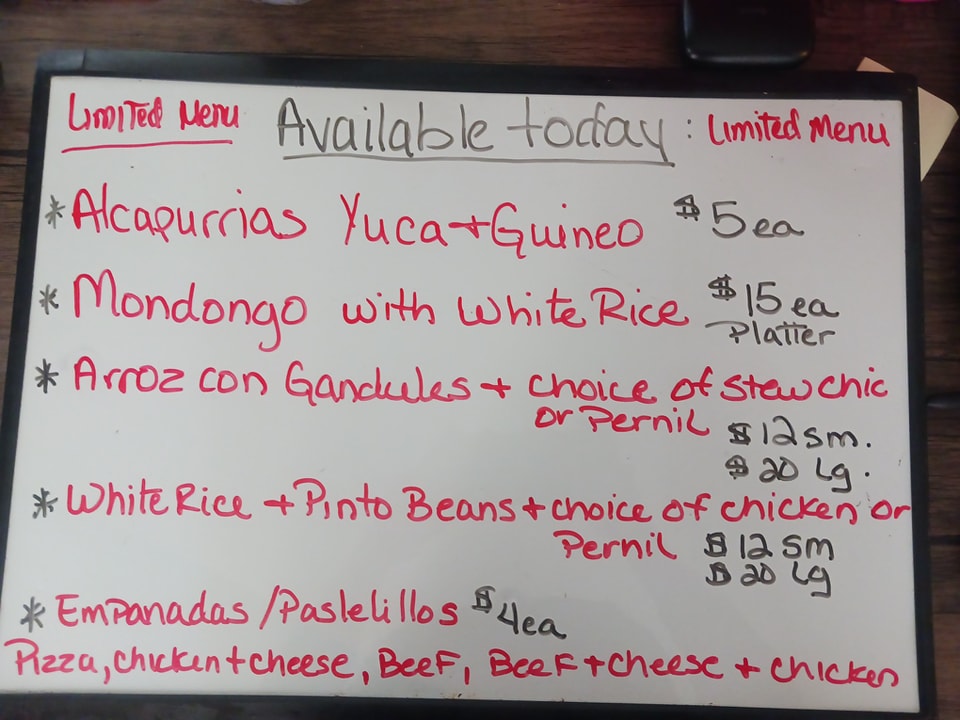 Limited Menu Available today : Limited Menu
* Alcapurrias Yuca + Guineo $5 ea
* Mondongo with White Rice $15 ea
Platter
* Arroz con Gandules + choice of stew chic
or Pernil $12 sm.
$20 Lg.
* White Rice + Pinto Beans + choice of chicken or
Pernil $12 sm
$20 Lg
* Empanadas / Paslelillos $4ea
Pizza, chicken + cheese, Beef, Beef + cheese + chicken